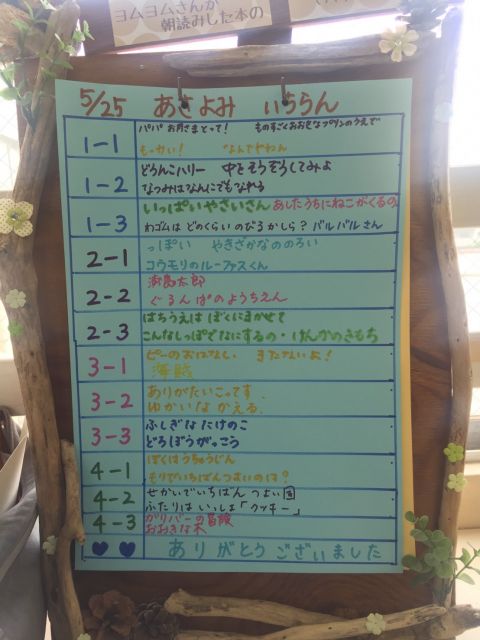 ヨムヨムさんが
朝読みした本の
5/25 あさよみ いちらん
1-1 パパ お月さまとって! ものすごくおおきなプリンのうえで
もっかい! なんでやねん
1-2 どろんこハリー 中をそうぞうしてみよ
なつみはなんにでもなれる
1-3 いっぱいやさいさん あしたうちにねこがくるの
わゴムは どのくらい のびるかしら? バルバルさん
2-1 っぽい やきざかなののろい
コウモリのルーファスくん
2-2 浦島太郎
ぐるんぱのようちえん
2-3 はちうえは ぼくにまかせて
こんなしっぽでなにするの・けんかのきもち
3-1 ピーのおはなし きたないよ!
海賊
3-2 ありがたいこってす.
ゆかいな かえる.
3-3 ふしぎなたけのこ
どろぼうがっこう
4-1 ぼくはうちゅうじん
もりでいちばんつよいのは?
4-2 せかいでいちばん つよい国
ふたりは いっしょ「クッキー」
4-3 ガリバーの冒険
おおきな木
♥ ♥ ありがとうございました